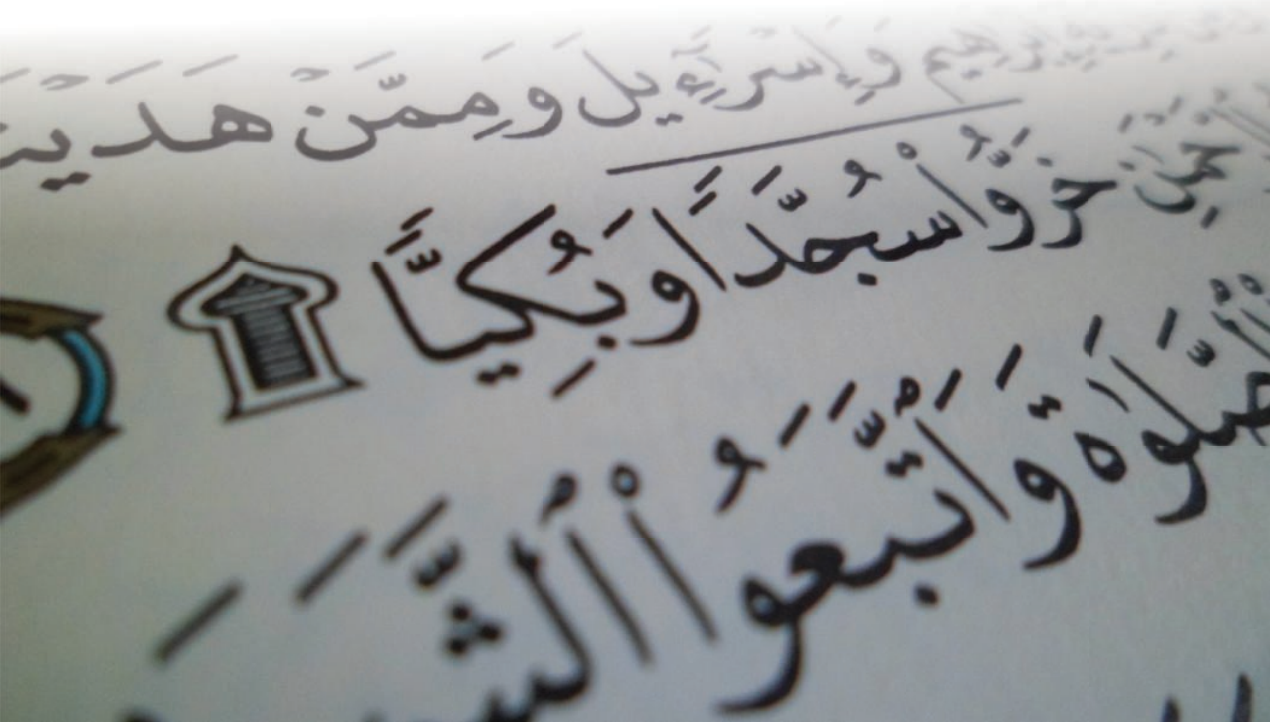 إِبْرَٰهِيمَ وَإِسْرَٰٓءِيلَ وَمِمَّنْ هَدَيْنَا
خَرُّوا۟ سُجَّدًا وَبُكِيًّا ۩
ٱلصَّلَوٰةَ وَٱتَّبَعُوا۟ ٱلشَّ